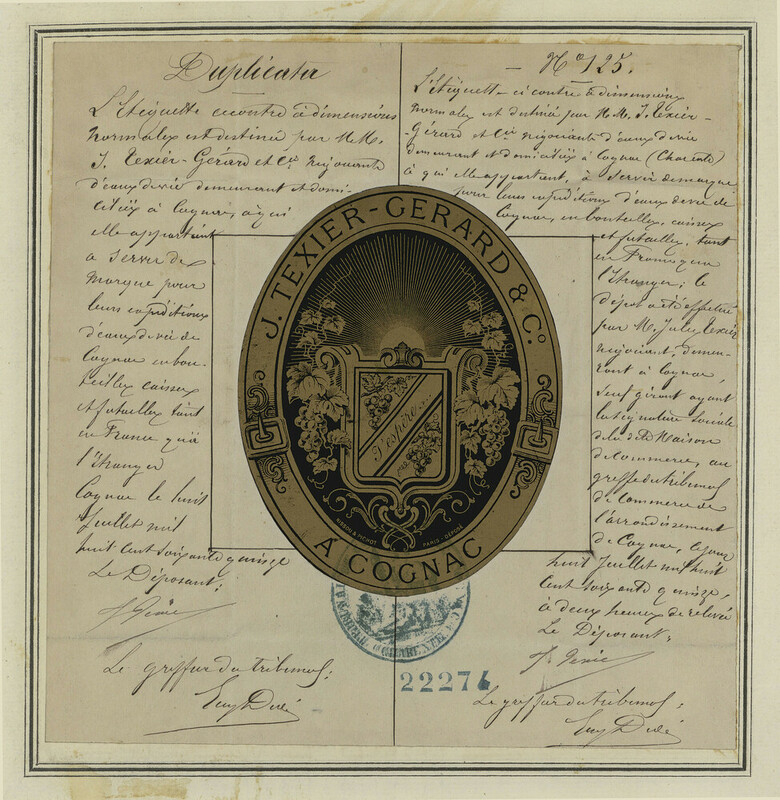 Duplicata
L'Etiquette ci contre à dimensions
normales est destinée par M.M.
J. Texier-Gérard et Cie négociants
d'eaux de vie demeurant et domi-
ciliés à Cognac, à qui
elle appartient
à servir de
marque pour
leurs expéditions
d'eaux de vie de
Cognac en bou-
teilles caisses
et futailles tant
en France qu'à
l'Etranger
Cognac le huit
Juillet mil
huit cent soixante quinze
Le Déposant:
J. Texier
Le greffier du tribunal:
No 125.
L'étiquette ci contre à dimensions
normales est destinée par M.M. J. Texier-
Gérard et Cie négociants d'eaux de vie
demeurant et domiciliés à Cognac (Charente)
à qui elle appartient, à servir de marque
pour leurs expéditions d'eaux de vie de
Cognac, en bouteilles, caisses
et futailles, tant
en France qu'à
l'Etranger; le
dépôt a été effectué
par M. Jules Texier
négociant, demeu-
rant à Cognac,
seul gérant ayant
la signature sociale
de la dite Maison
de Commerce, au
greffe du tribunal
de Commerce de
l'arrondissement
de Cognac, le jour
huit Juillet mil huit
cent soixante quinze,
à deux heures de relevée
Le Déposant:
J. Texier
Le greffier du tribunal:
J. TEXIER-GERARD & Co.
J'espère...
NISSOU & PICHOT PARIS - DÉPOSÉ
A COGNAC
22274